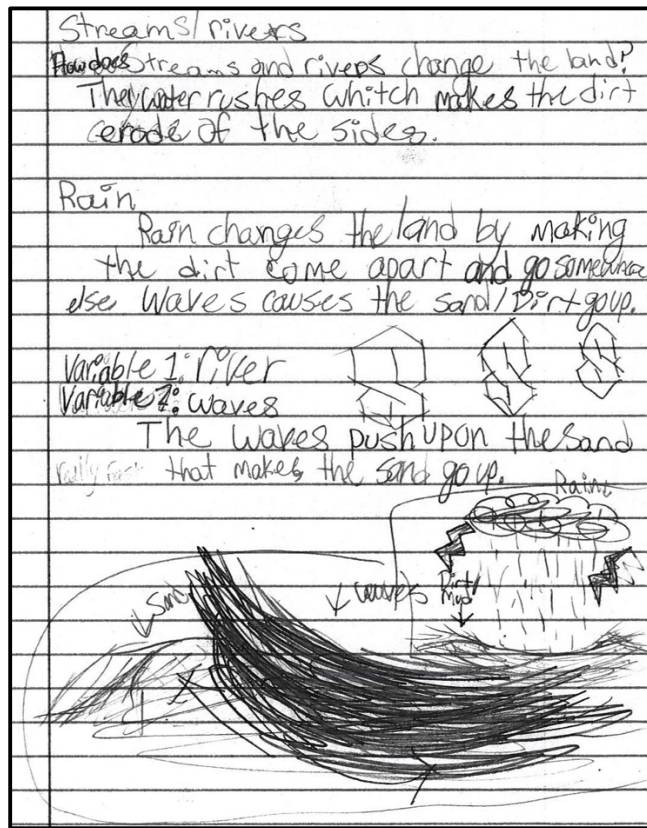 Streams/rivers
How does Streams and rivers change the land?
They water rushes whitch makes the dirt
erode of the sides.
Rain
Rain changes the land by making
the dirt come apart and go somewhere
else waves causes the sand/Dirt go up.
Variable 1: river
Variable 2: waves
The waves push upon the sand
really fast that makes the sand go up.
Rain
↓ Sand
↓ waves
Dirt/
Mud
↓